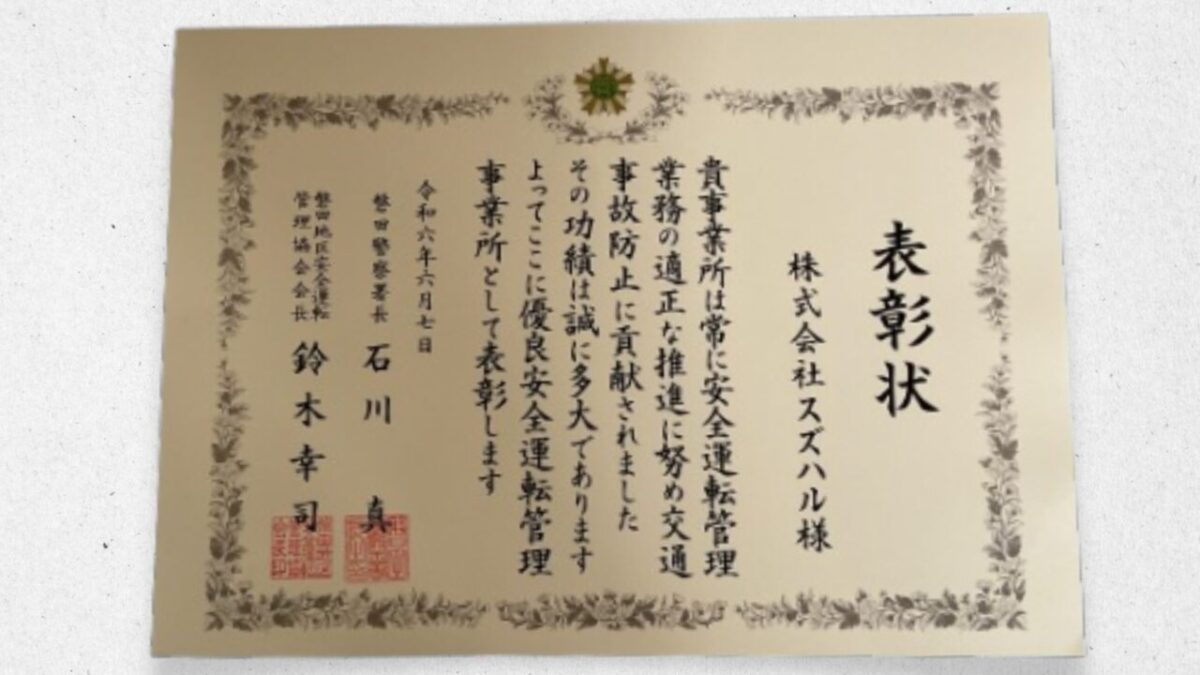 表彰状
株式会社スズハル様
貴事業所は常に安全運転管理
業務の適正な推進に努め交通
事故防止に貢献されました
その功績は誠に多大であります
よってここに優良安全運転管理
事業所として表彰します
令和六年六月七日
磐田警察署長 石川 真
磐田地区安全運転
管理協会会長 鈴木幸司